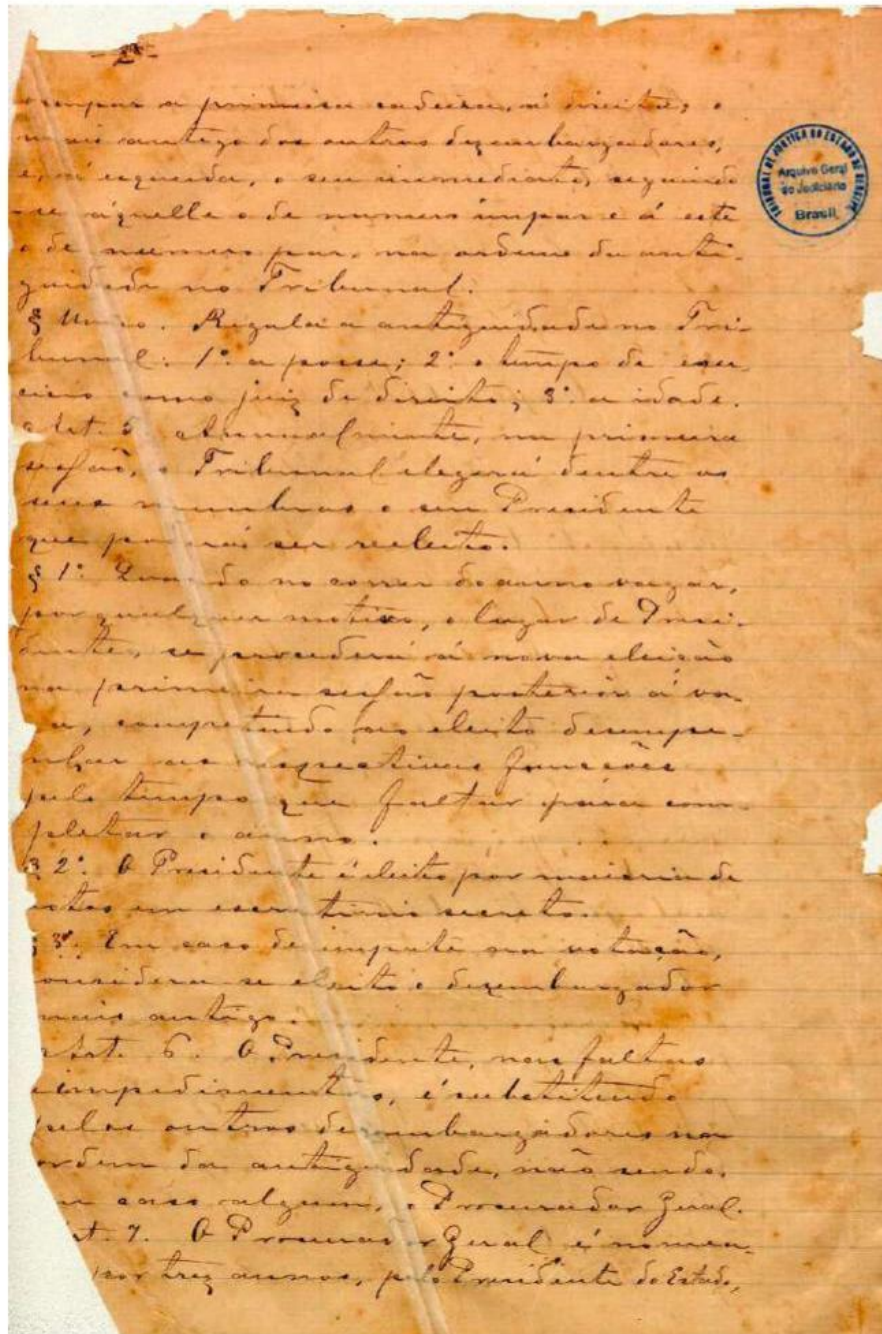 -2-
ocupar a primeira cadeira, á direita, o
mais antigo dos outros dezembargadores,
e, á esquerda, o seu immediato, seguindo
-se áquelle o de numero impar e á este
o de numero par, na ordem da anti-
guidade no Tribunal.
§ Unico. Regula a antiguidade no Tri-
bunal: 1º a posse; 2º o tempo de exer-
cicio como juiz de direito; 3º a idade.
Art. 5. Annualmente, na primeira
sessão, o Tribunal elegerá dentre os
seus membros o seu Presidente
que poderá ser reeleito.
§ 1º Quando no correr do anno vagar,
por qualquer motivo, o lugar de Presi-
dente, se procederá á nova eleição
na primeira sessão posterior á va-
ga, competindo ao eleito desempe-
nhar as respectivas funcções
pelo tempo que faltar para com-
pletar o anno.
§ 2º. O Presidente é eleito por maioria de
votos em escrutinio secreto.
§ 3º. Em caso de empate na votação,
considera se eleito o dezembargador
mais antigo.
Art. 6. O Presidente, nas faltas
e impedimentos, é substituido
pelos outros dezembargadores na
ordem da antiguidade, não sendo,
em caso algum, o Procurador Geral.
Art. 7. O Procurador Geral é nomea-
por trez annos, pelo Presidente do Estado,
TRIBUNAL DE JUSTIÇA DO ESTADO DE SERGIPE
Arquivo Geral
do Judiciário
Brasil